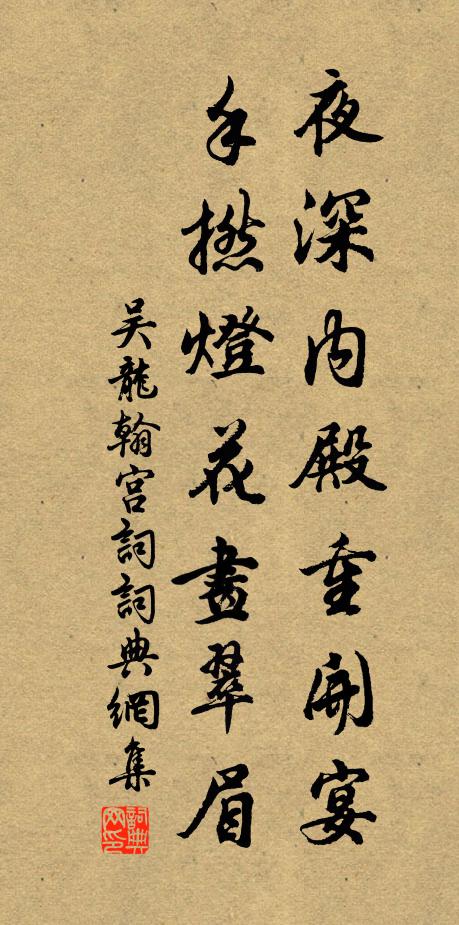 夜深内殿重開宴
手撚燈花畫翠眉
吳龍翰宮詞詞典網集
詞典网印